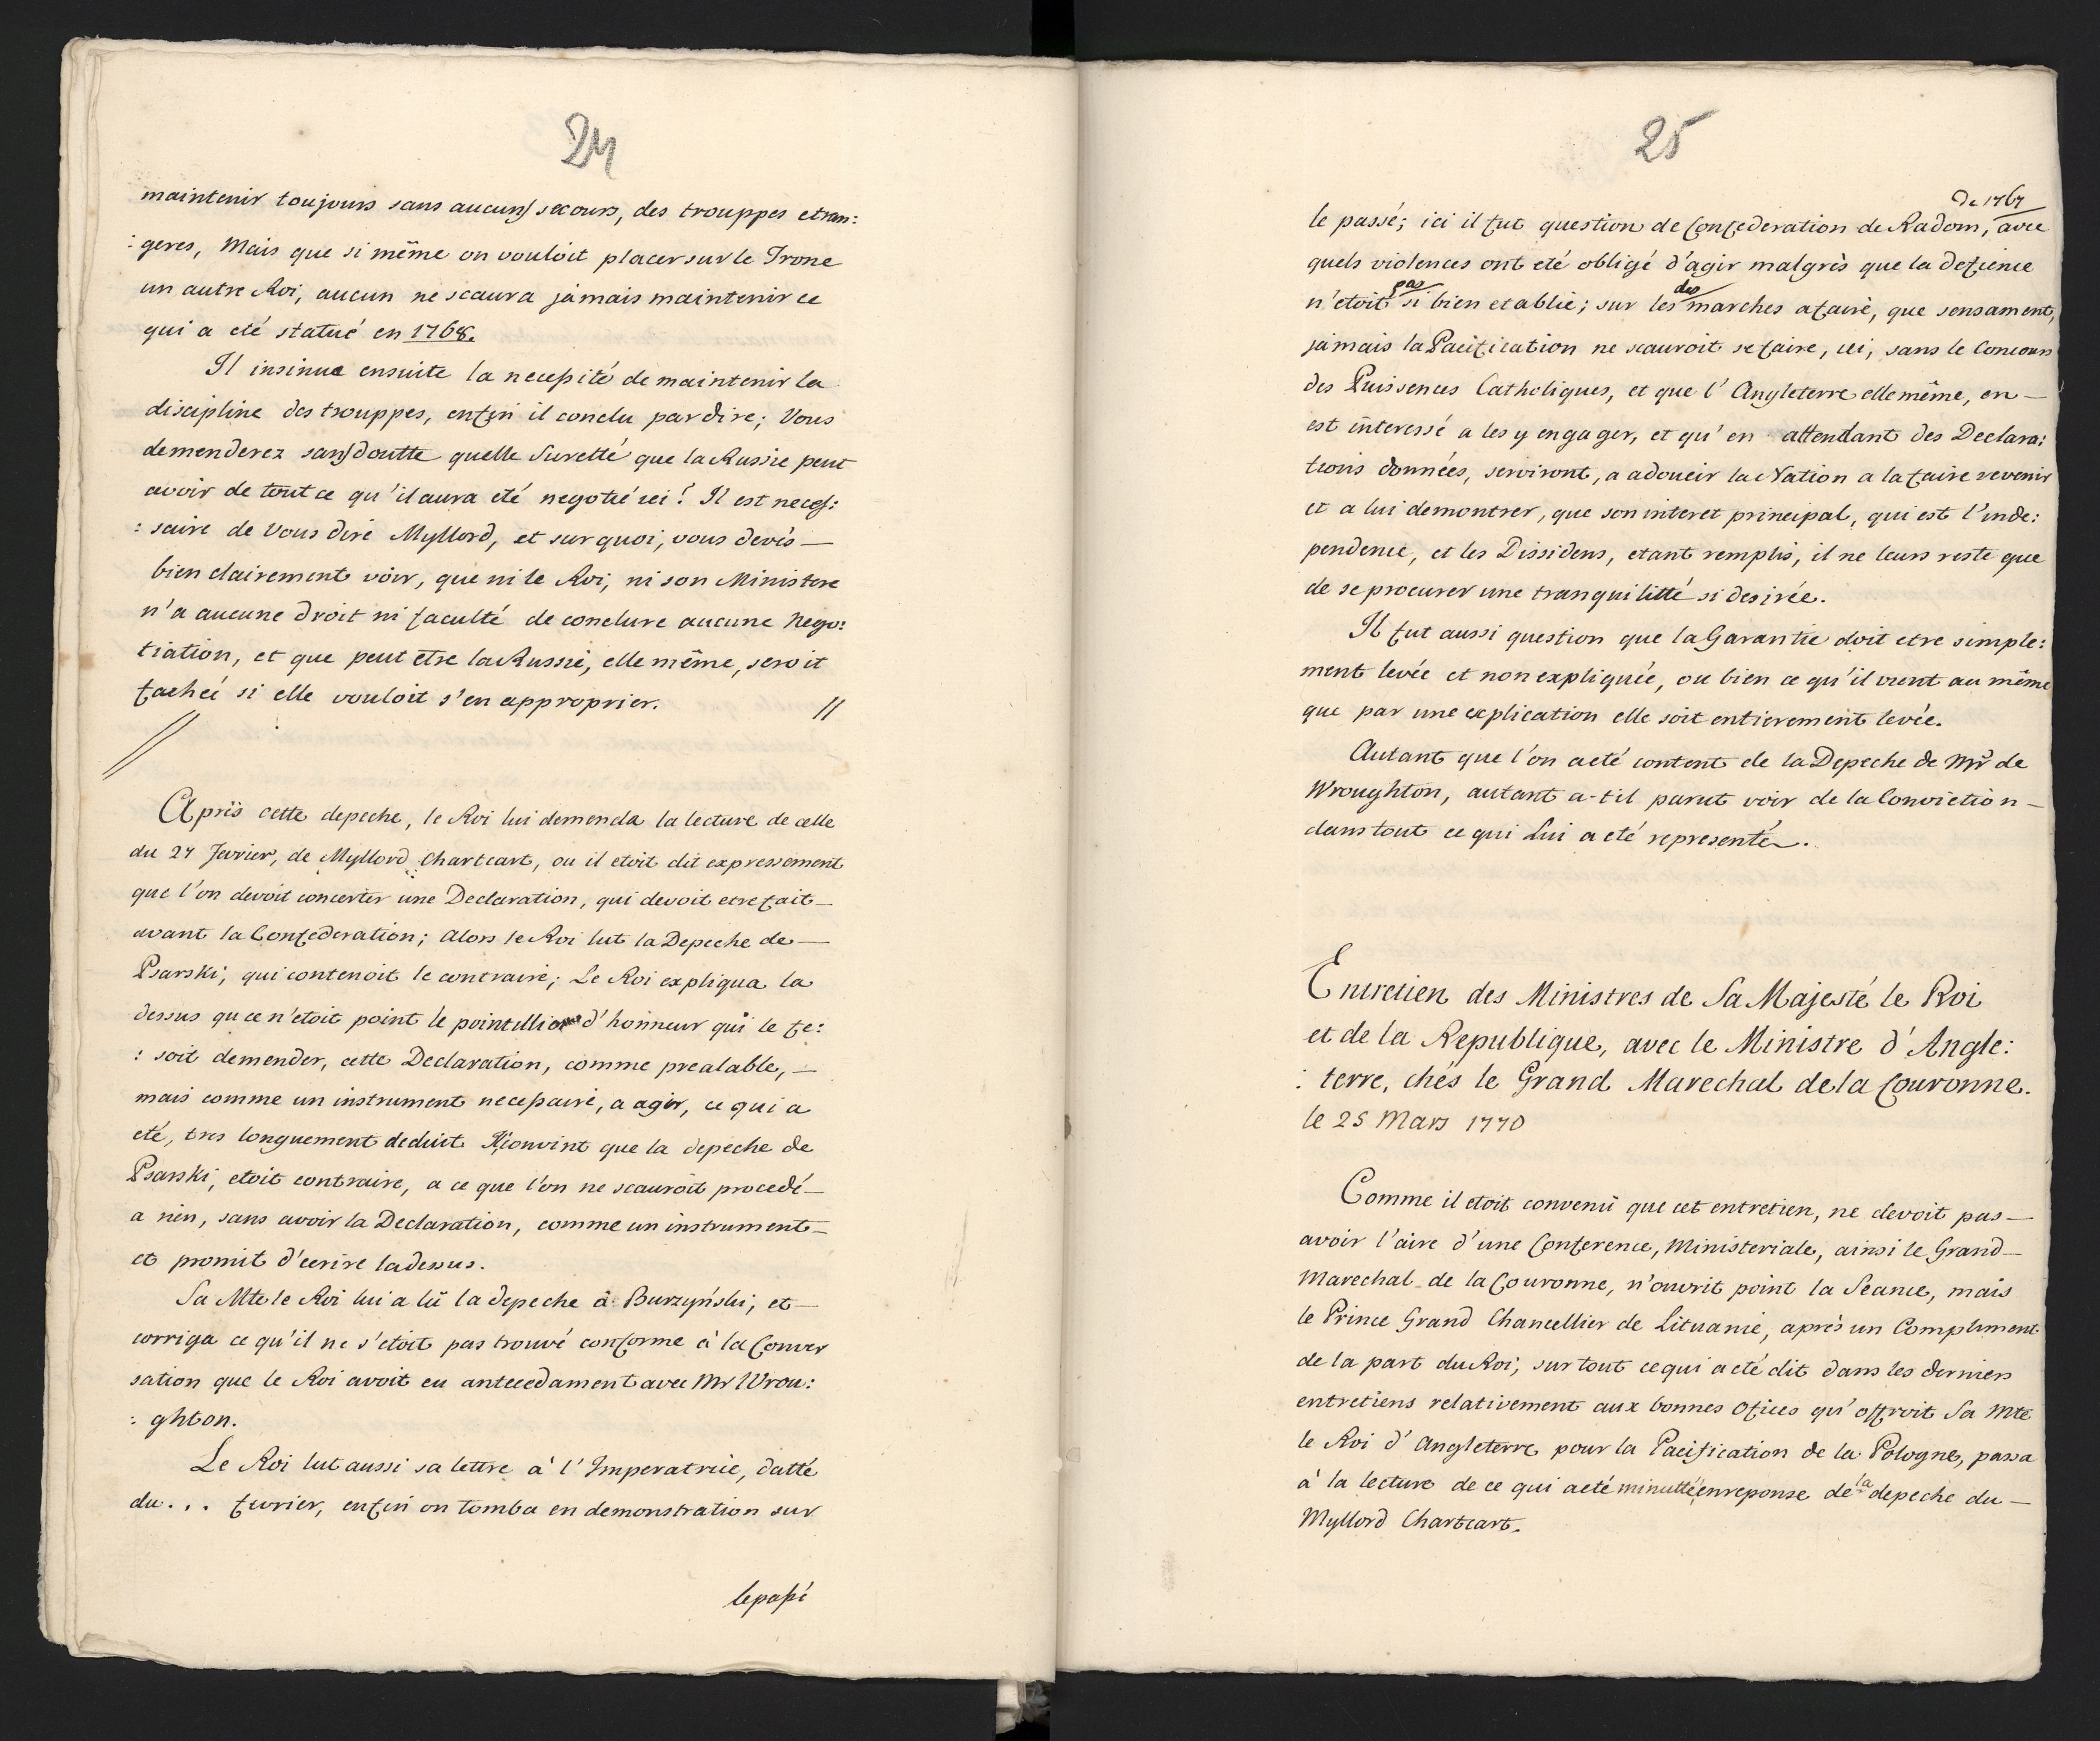 24
maintenir toujours sans aucuns secours, des trouppes etran:
: geres, Mais que si même on vouloit placer sur le Trone
un autre Roi, aucun ne scaura jamais maintenir ce
qui a eté statué en 1768.
Il insinua ensuite la necessité de maintenir la
discipline des trouppes, enfin il conclu par dire; Vous
demenderez sans doutte quelle Suretté que la Russie peut
avoir de tout ce qu'il aura eté negotié ici? Il est neces:
: saire de Vous dire Myllord, et sur quoi, vous devés —
bien clairement voir, que ni le Roi, ni son Ministere
n'a aucune droit ni faculté de conclure aucune Nego:
tiation, et que peut etre la Russie, elle même, seroit
fachée si elle vouloit s'en approprier. //
//
Après cette depeche, le Roi lui demenda la lecture de celle
du 27 Fevrier, de Myllord Chartcart, ou il etoit dit expressement
que l'on devoit concerter une Declaration, qui devoit etre fait —
avant la Confederation; Alors le Roi lut la Depeche de —
Psarski, qui contenoit le contraire; Le Roi expliqua la
dessus que ce n'etoit point le d'honneur qui le fe:
: soit demender, cette Declaration, comme prealable, —
mais comme un instrument necessaire, a agir, ce qui a
eté, tres longuement deduit Il convint que la depeche de
Psarski, etoit contraire, a ce que l'on ne scauroit procedé —
a rien, sans avoir la Declaration, comme un instrument —
et promit d'ecrire ladessus.
Sa Mte le Roi lui a lû la depeche à Burzyński, et —
corriga ce qu'il ne s'etoit pas trouvé conforme à la Conver
sation que le Roi avoit eu antecedament avec Mr Wrou:
: ghton.
Le Roi lut aussi sa lettre à l'Imperatrice, datté
du . . . fevrier, enfin on tomba en demonstration sur
le passé
25
de 1767
le passé; ici il fut question de Confederation de Radom, avec
quels violences ont eté obligé d'agir malgrès que la defience
n'etoit pas si bien etablie; sur les des marches a faire, que sensament,
jamais la Pacification ne scauroit se faire, ici, sans le Concours
des Puissences Catholiques, et que l'Angleterre elle même, en —
est interessé a les y engager, et qu'en attendant des Declara:
tions données, serviront, a adoucir la Nation a la faire revenir
et a lui demontrer, que son interet principal, qui est l'inde:
pendence, et les Dissidens, etant remplis, il ne leurs reste que
de se procurer une tranquilitté si desirée.
Il fut aussi question que la Garantie doit etre simple:
ment levée et non expliquée, ou bien ce qu'il vient au même
que par une explication elle soit entierement levée.
Autant que l'on a eté content de la Depeche de Mr de
Wroughton, autant a-t-il parut voir de la Conviction —
dans tout ce qui Lui a eté representé.
Entretien des Ministres de Sa Majesté le Roi
et de la Republique, avec le Ministre d'Angle:
: terre, chés le Grand Marechal de la Couronne.
le 25 Mars 1770
Comme il etoit convenû que cet entretien, ne devoit pas —
avoir l'aire d'une Conference, Ministeriale, ainsi le Grand —
Marechal de la Couronne, n'ouvrit point la Seance, mais
le Prince Grand Chancellier de Lituanie, après un Compliment
de la part du Roi, sur tout ce qui a eté dit dans les derniers
entretiens relativement aux bonnes Ofices qu'offroit Sa Mte
le Roi d'Angleterre pour la Pacification de la Pologne, passa
à la lecture de ce qui a eté minutté, en reponse de la depeche du —
Myllord Chartcart.